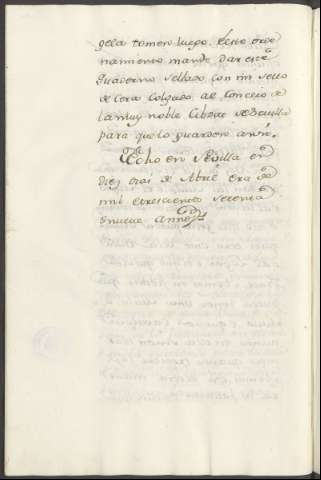 gela tomen luego. E esto orde
namiento mande dar este
Quaderno sellado con mi sello
de Cera Colgado al Concejo de
la muy noble Cibdat de Sevilla
para que lo guarden ansi.
Fecho en Sevilla en
diez dias de Abril era de
mil e trescientos setenta
e nueve annos